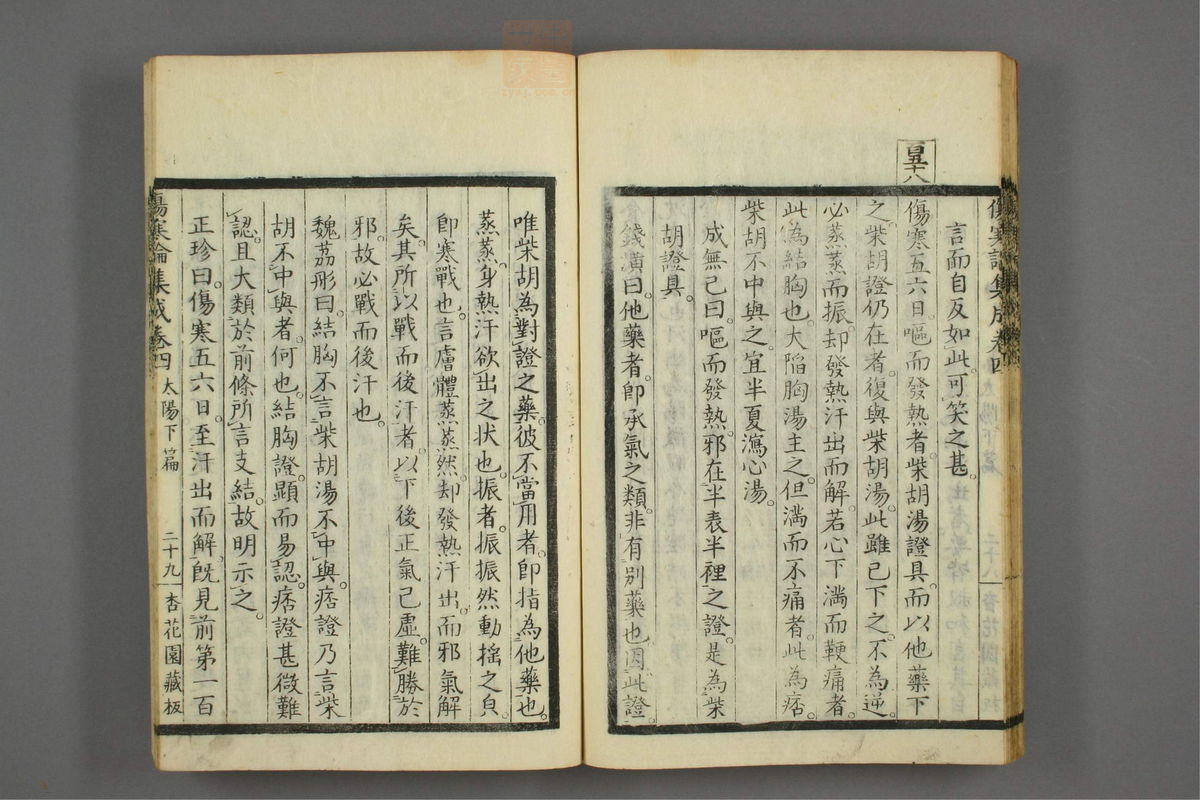 百五十八
言而自反如此。可笑之甚。
傷寒五六日。嘔而發熱者。柴胡湯證具。而以他藥下
之。柴胡證仍在者。復與柴胡湯。此雖已下之。不為逆。
必蒸蒸而振。却發熱汗出而解。若心下滿而鞕痛者。
此為結胸也。大陷胸湯主之。但滿而不痛者。此為痞。
柴胡不中與之。宜半夏瀉心湯。
成無己曰。嘔而發熱。邪在半表半裡之證。是為柴
胡證具。
錢潢曰。他藥者。即承氣之類。非有別藥也。因此證
唯柴胡為對證之藥。彼不當用者。即指為他藥也。
蒸蒸。身熱汗欲出之状也。振者。振振然動搖之皃。
即寒戰也。言膚體蒸蒸然。却發熱汗出。而邪氣解
矣。其所以戰而後汗者。以下後正氣已虛。難勝於
邪。故必戰而後汗也。
魏荔彤曰。結胸不言柴胡湯不中與。痞證乃言柴
胡不中與者。何也。結胸證。顯而易認。痞證甚微難
認。且大類於前條所言支結。故明示之。
正珍曰。傷寒五六日。至汗出而解。既見前第一百
傷寒論集成卷四 太陽下篇 二十九 杏花園藏板